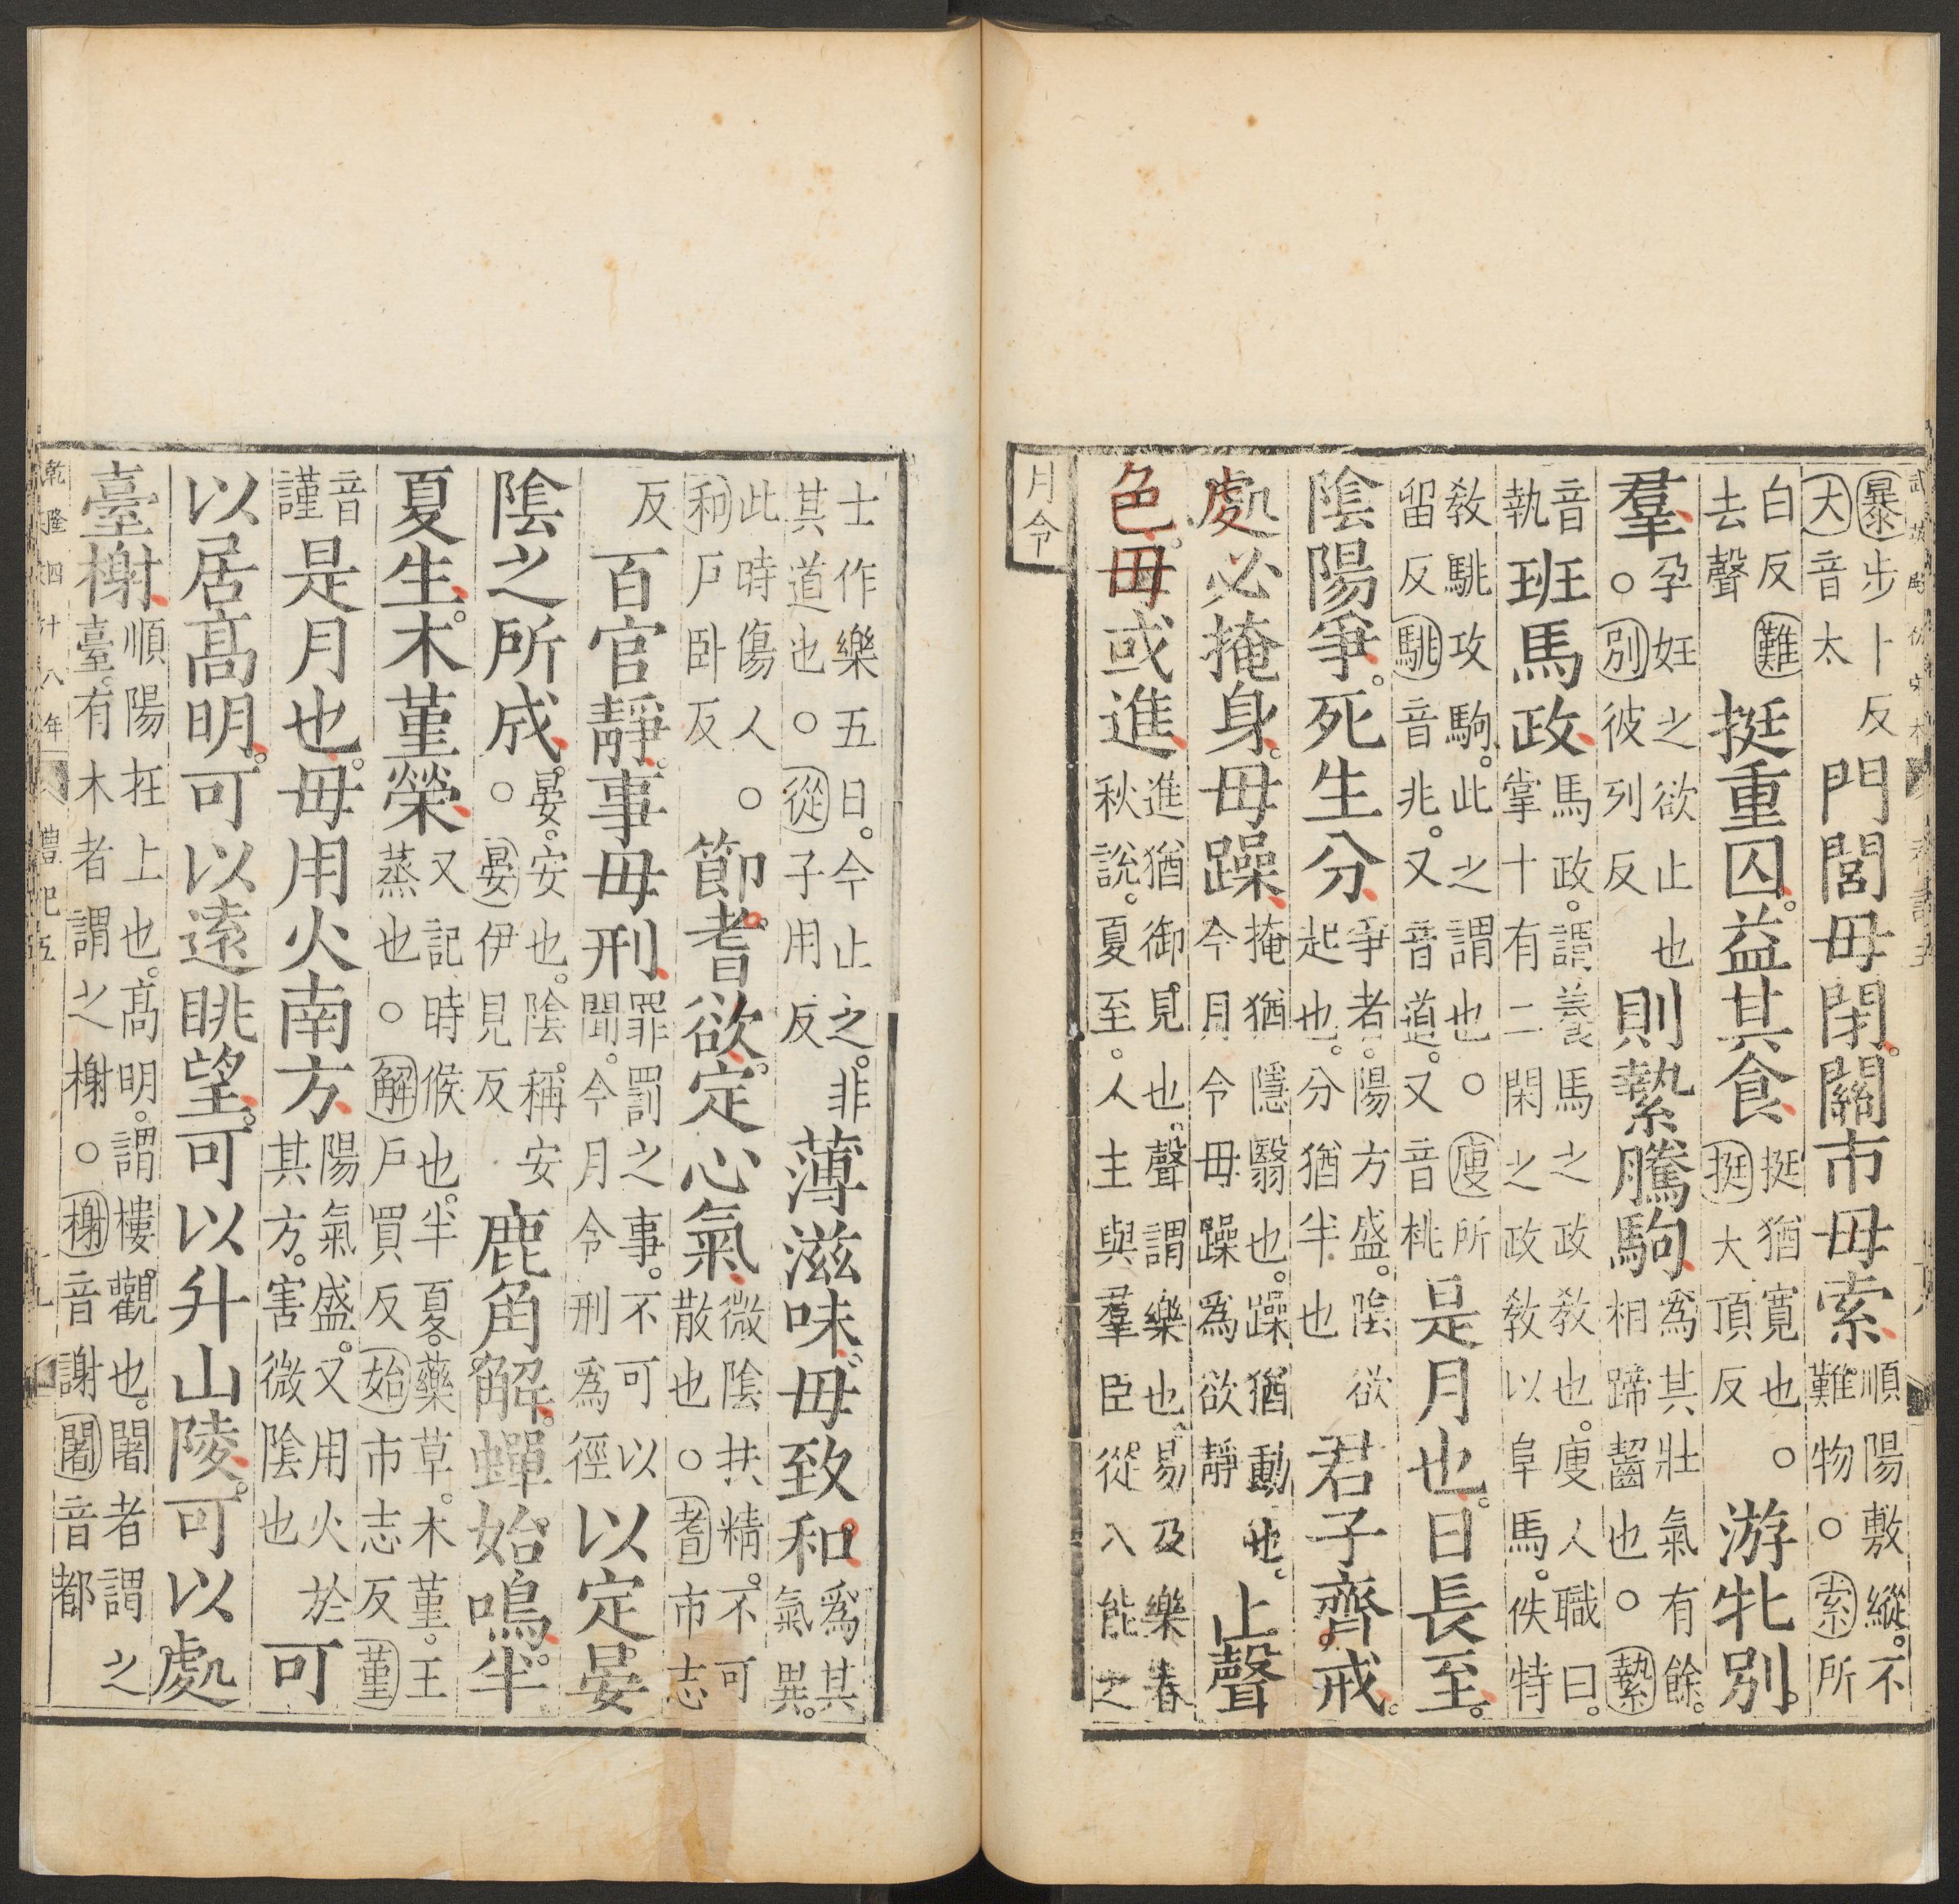 暴步卜反大音太門閭毋閉。關市毋索順陽敷縱。不難物○索所
白反難去聲挺重囚。益其食挺猶寬也○挺大頂反游牝別。
羣孕妊之欲止也○別彼列反則縶騰駒爲其壯氣有餘。相蹄齧也○縶
音執班馬政馬政。謂養馬之政教也。廋人職曰。掌十有二閑之政教以阜馬。佚特
教駣攻駒。此之謂也○廋所留反駣音兆。又音道。又音桃是月也。日長至。
陰陽爭。死生分爭者。陽方盛。陰欲起也。分猶半也君子齊戒。
處必掩身。毋躁掩猶隱翳也。躁猶動也。今月令毋躁爲欲靜止聲
色。毋或進進猶御見也。聲謂樂也。易及樂春秋說。夏至。人主與羣臣從八能之
月令
士作樂五日。今止之。非其道也○從子用反薄滋味。毋致和爲其氣異。
此時傷人○和戶卧反節耆欲。定心氣微陰扶精。不可散也○耆市志
反百官靜。事毋刑罪罰之事。不可以聞。今月令刑爲徑以定晏
陰之所成。晏。安也。陰。稱安○晏伊見反鹿角解。蟬始鳴。半
夏生。木堇榮又記時候也。半夏。藥草。木堇。王蒸也○解戶買反始市志反堇
音謹是月也。毋用火南方陽氣盛。又用火於其方。害微陰也可
以居高明。可以遠眺望。可以升山陵。可以處
臺榭順陽在上也。高明。謂樓觀也。闍者謂之臺。有木者謂之榭○榭音謝闍音都
乾隆四十八年 禮記五